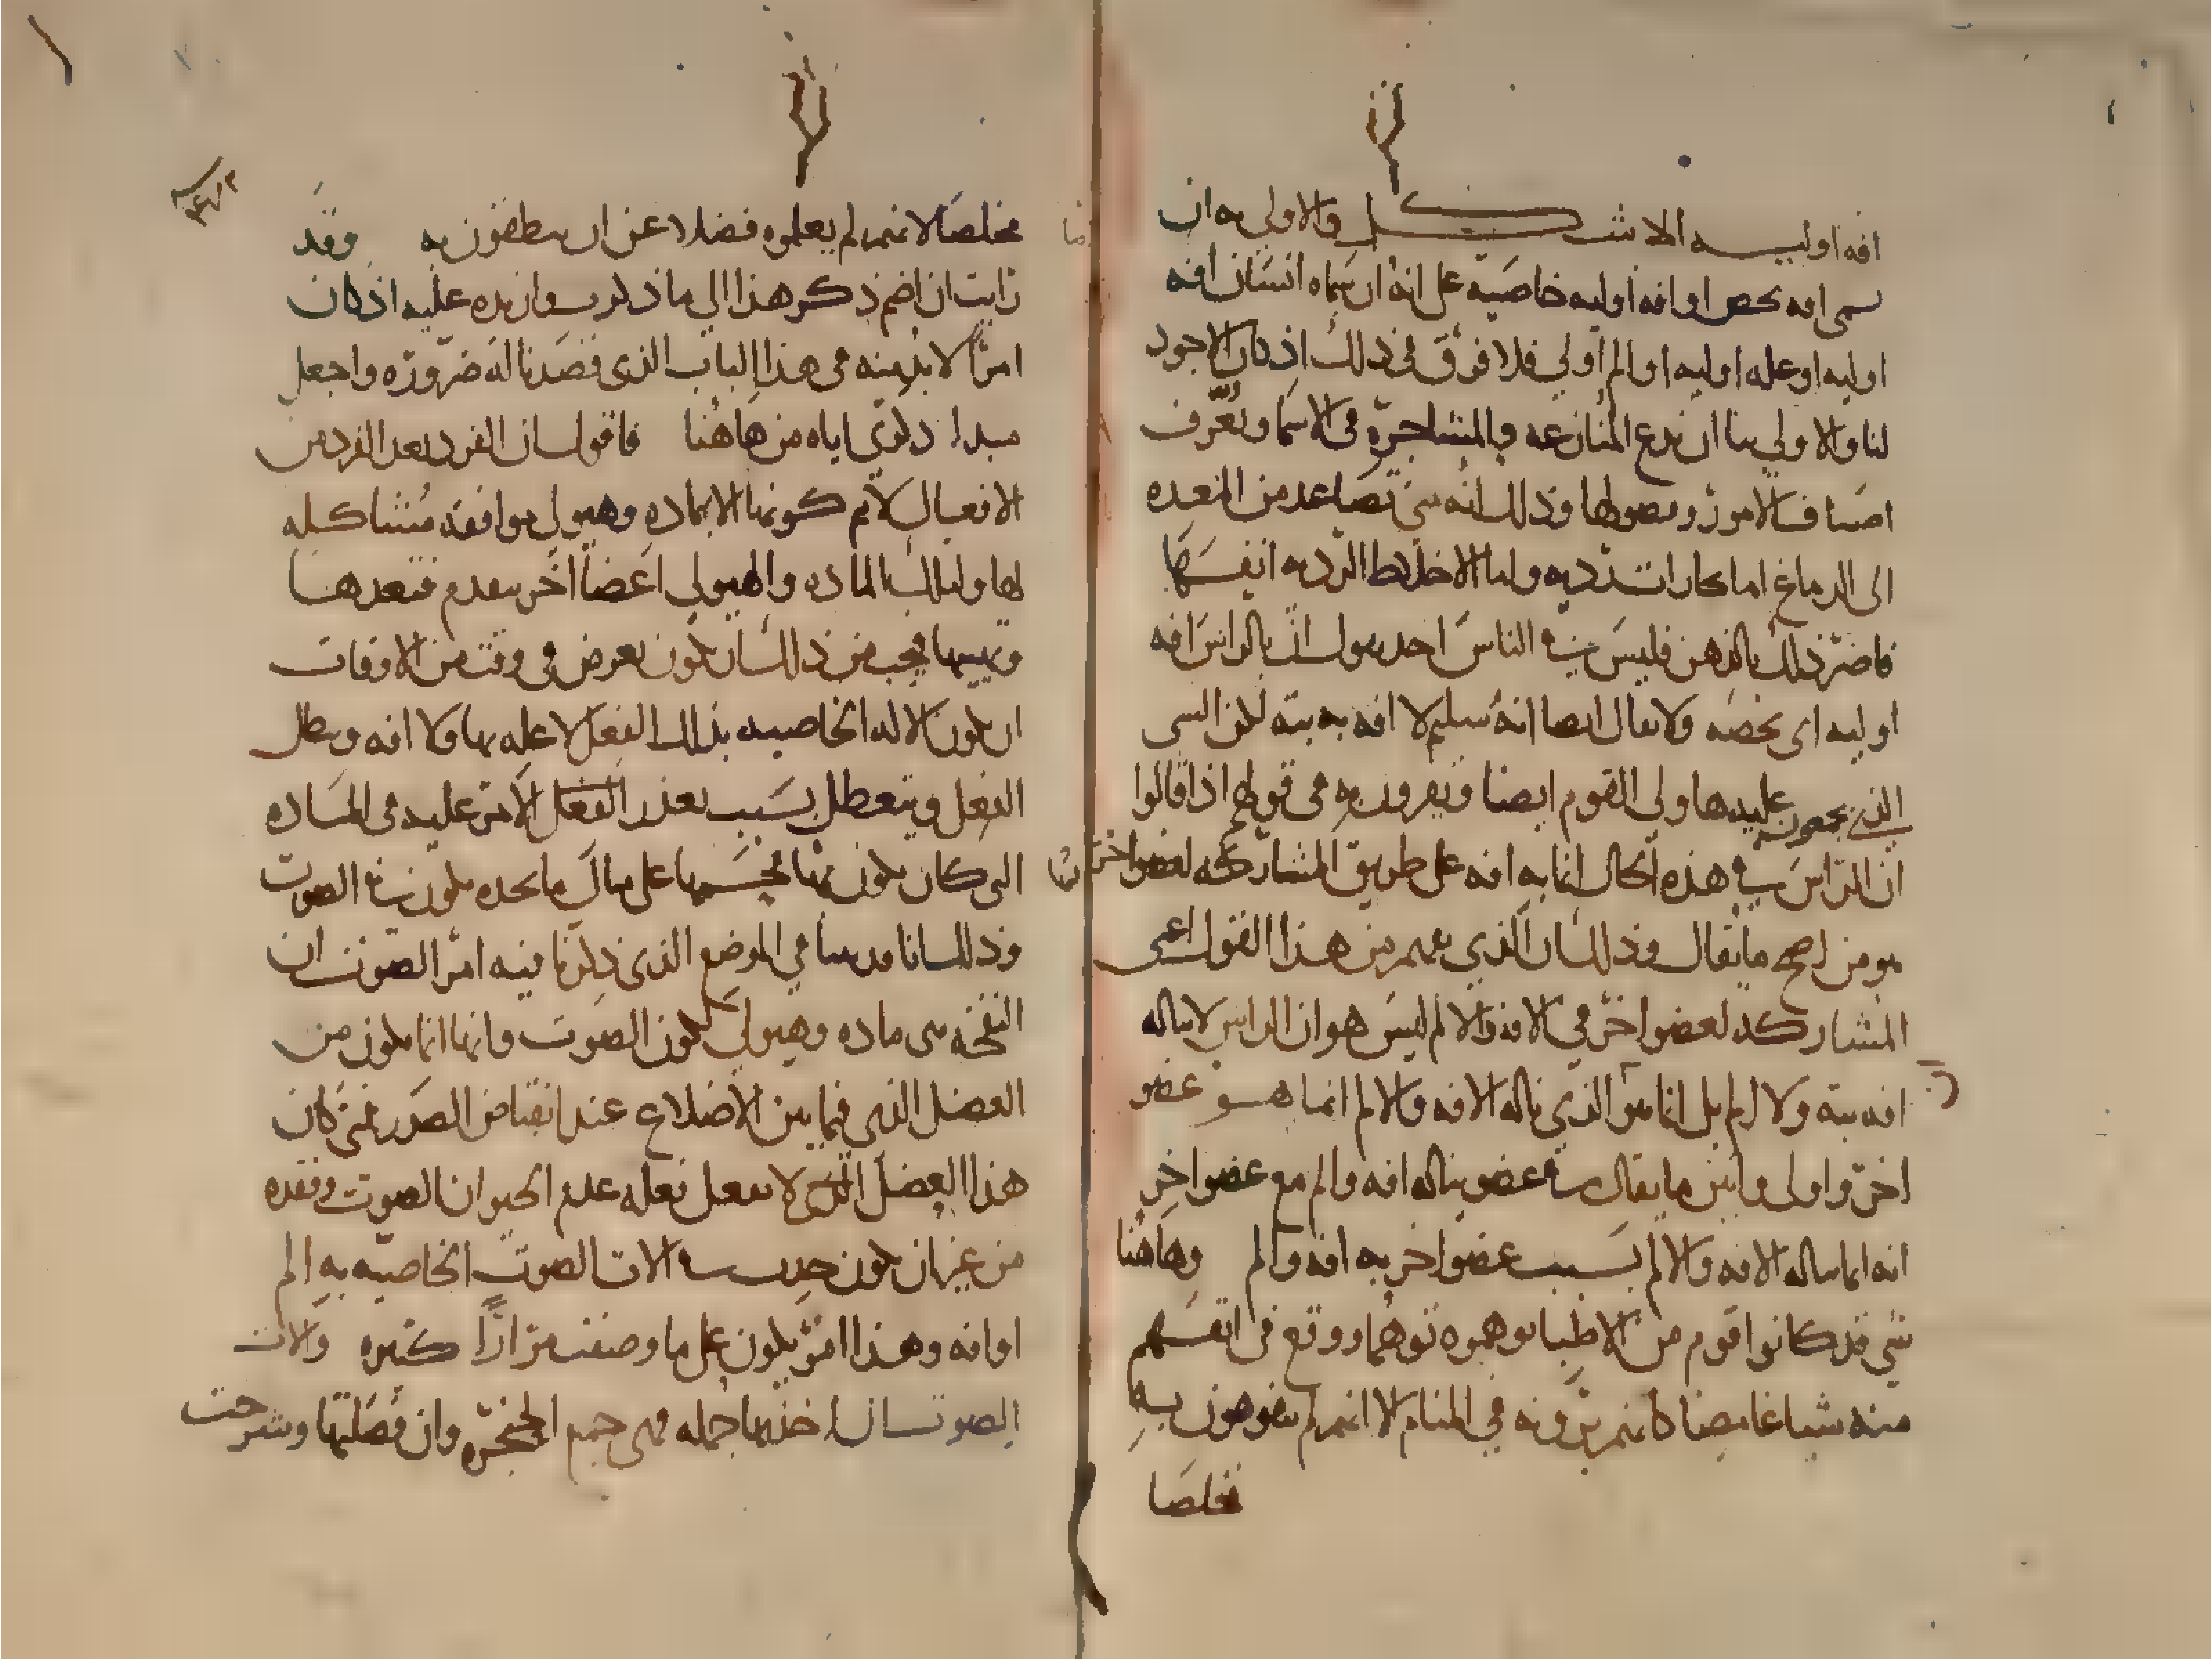 افه اوليه الا شك والاولى به ان
سمى افه تخص او افه اوليه خاصيه على انه ان سماه انسان افه
اوليه او عله اوليه او الم اولي فلا فرق في ذلك اذ كان الاجود
لنا والاولي بنا ان ندع المنازعه والمشاجره في الاسما ونعرف
اصناف الامور وفصولها وذلك انه متى تصاعد من المعده
الى الدماغ اما بخارات رديه واما الاخلاط الرديه انفسها
فاضر ذلك بالذهن فليس في الناس احد يقول ان بالراس افه
اوليه اي تخصه ولا يقال ايضا انه سليم لا افه به بته لكن الشي
الذي يجمعون عليه هاولي القوم ايضا ويقرون به في قولهم اذا قالوا
ان الراس في هذه الحال انما به افه على طريق المشاركه لعضو اخر
هو من اصح ما يقال وذلك ان الذي يفهم من هذا القول اعني
المشاركه لعضو اخر في الافه والالم ليس هو ان الراس لا يناله
افه بته ولا الم بل انما هو الذي ناله الافه والالم انما هو عضو
اخر واولى وابين ما يقال في عضو يناله افه والم مع عضو اخر
انه انما يناله الافه والالم بسبب عضو اخر به افه والم وهاهنا
شي قد كانوا قوم من الاطبا توهموه توهما ووقع في انفسهم
منه شيا غامضا كانهم يرونه في المنام الا انهم لم يتفوهون به
مخلصا
مخلصا لانهم لم يعلموه فضلا عن ان ينطقون به وقد
رايت ان اضم ذكر هذا الي ما ذكرت وازيده عليه اذ كان
امرا لا بد منه في هذا الباب الذي قصدنا له ضروره واجعل
مبدا ذكري اياه من هاهنا فاقول ان الفرد بعد الفرد من
الافعال لا يتم كونها الا بماده وهيولي موافقه مشاكله
لها ولتلك الماده والهيولي اعضا اخر يتقدم فتعدها
وتهييها فيجب من ذلك ان يكون يعرض في وقت من الاوقات
ان يكون الاله الخاصيه بذلك الفعل لا عله بها ولا افه ويبطل
الفعل ويتعطل بسبب تعذر الفعل الامر عليه في الماده
التي كان يكون بها بحسبها على مثال ما نجده يكون في الصوت
وذلك انا قد بينا في الموضع الذي ذكرنا فيه امر الصوت ان
النفخه هي ماده وهيولي لكون الصوت وانها انما يكون من
العضل الذي فيما بين الاضلاع عند انقباض الصدر فمتى كان
هذا العضل الذي لا يفعل فعله عدم الحيوان الصوت وفقده
من غير ان يكون حدث في الات الصوت الخاصيه به الم
او افه وهذا امر يكون على ما وصفت مرارا كثيره والات
الصوت ان اخذتها جمله فهي جميع الحنجره وان فصلتها وشرحت